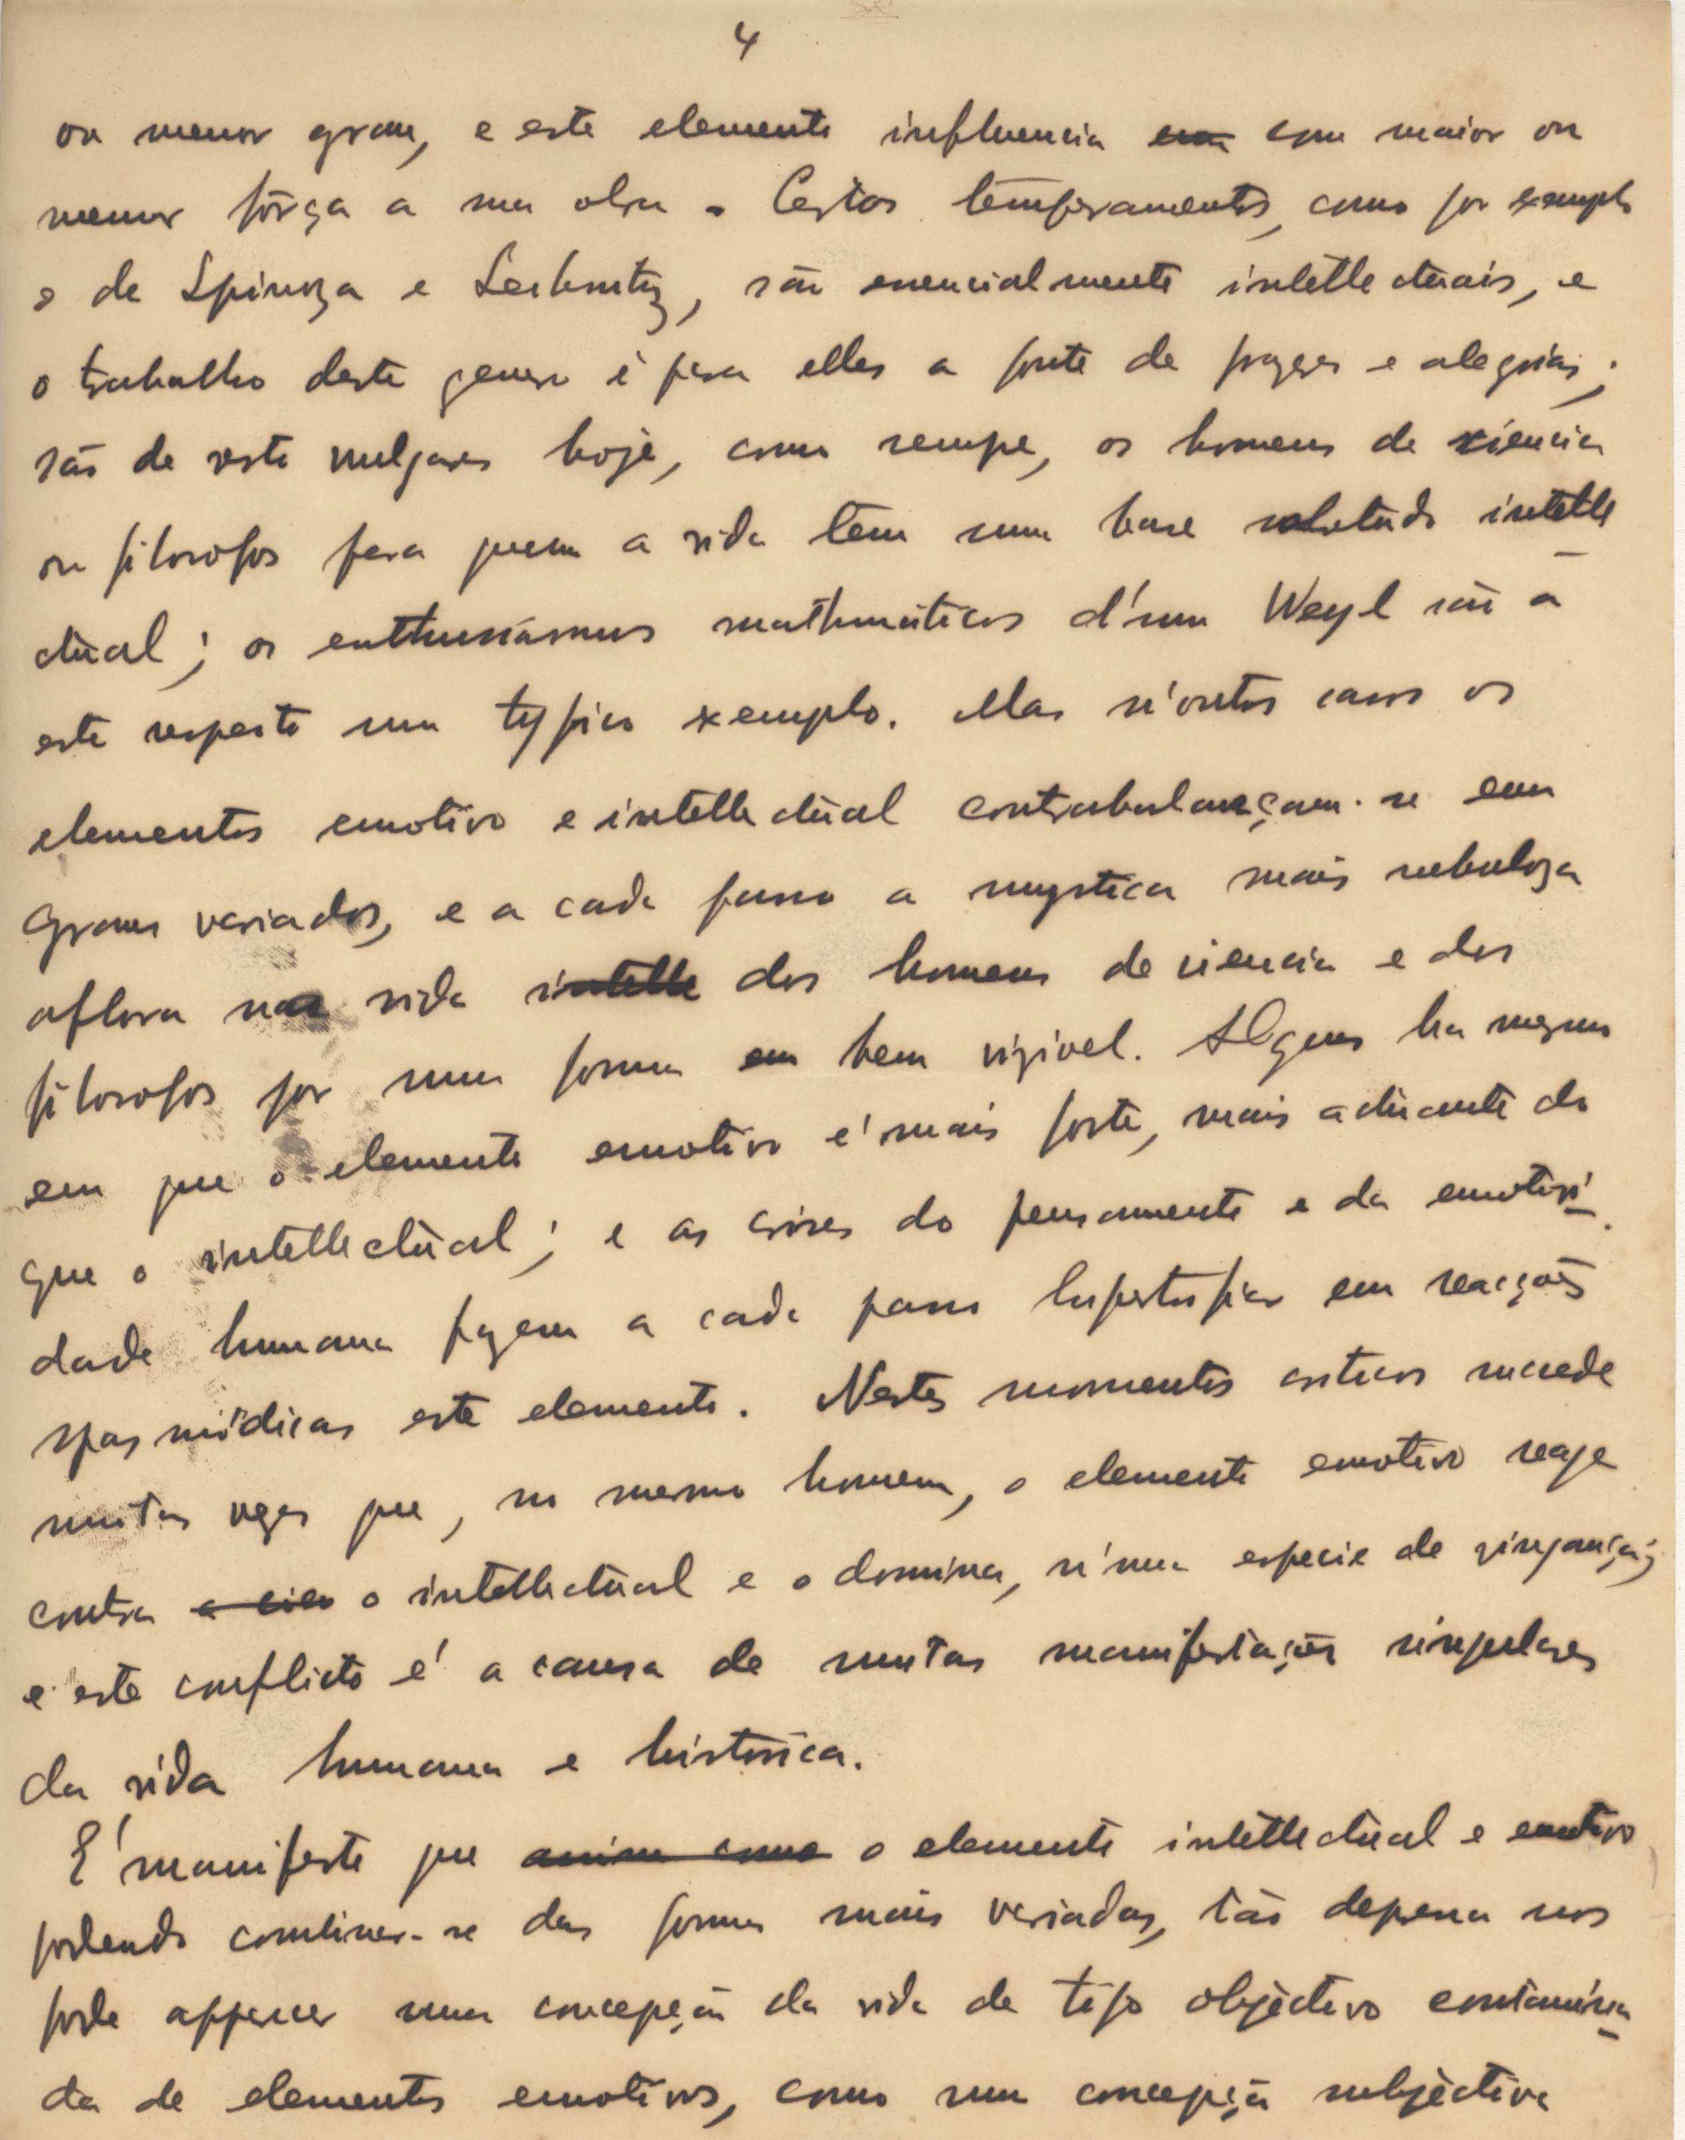 4
ou menor grau, e este elemento influencia com maior ou
menor fôrça a sua obra. Certos temperamentos, como por exemplo
o de Spinoza e Leibnitz, são essencialmente intellectuais, e
o trabalho deste genero é para elles a fonte de prazeres e alegrias;
são de resto vulgares hoje, como sempre, os homens de sciencia
ou filosofos para quem a vida tem uma base sobretudo intelle
ctual; os enthusiasmos mathematicos d'um Weyl são a
este respeito um typico exemplo. Mas n'outros casos os
elementos emotivo e intellectual contrabalançam-se em
graus variados, e a cada passo a mystica mais nebuloza
aflora na vida intelle dos homens de sciencia e dos
filosofos por uma forma em bem vizivel. Alguns ha mesmo
em que o elemento emotivo é mais forte, mais actuante do
que o intellectual; e as crises do pensamento e da emotivi-
dade humana fazem a cada passo hipertrofiar em reacções
spasmódicas este elemento. Nestes momentos criticos succede
muitas vezes que, no mesmo homem, o elemento emotivo reage
contra o intellectual e o domina, n'uma especie de vingança;
e este conflicto é a causa de muitas manifestações singulares
da vida humana e historica.
É manifesto que assim como o elemento intellectual e emotivo
podendo combinar-se das formas mais variadas, tão depressa nos
pode apparecer uma concepção da vida de tipo objectivo contamina
da de elementos emotivos, como uma concepção subjectiva